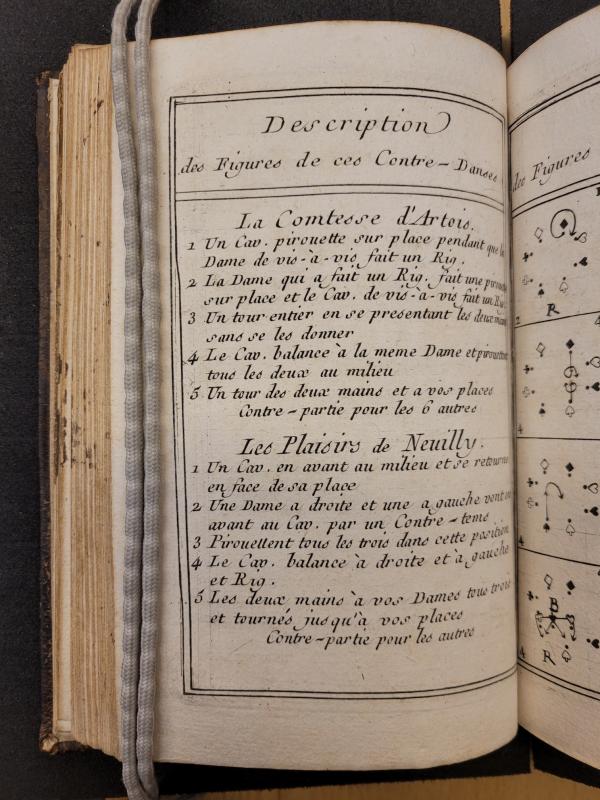 Description
des Figures de ces Contre-Danses
La Comtesse d'Artois.
1 Un Cav. pirouette sur place pendant que la
Dame de vis-à-vis fait un Rig.
2 La Dame qui a fait un Rig. fait une pirouette
sur place et le Cav. de vis-à-vis fait un Rig.
3 Un tour entier en se presentant les deux mains
sans se les donner
4 Le Cav. balance à la meme Dame et pirouettent
tous les deux au milieu
5 Un tour des deux mains et a vos places
Contre-partie pour les 6 autres
Les Plaisirs de Neuilly.
1 Un Cav. en avant au milieu et se retourne
en face de sa place
2 Une Dame a droite et une a gauche vont en
avant au Cav. par un Contre-tems
3 Pirouettent tous les trois dans cette position
4 Le Cav. balance à droite et à gauche
et Rig.
5 Les deux mains à vos Dames tous trois
et tournés jusqu'à vos places
Contre-partie pour les autres
des Figures
2
R
4
4
B
4
R